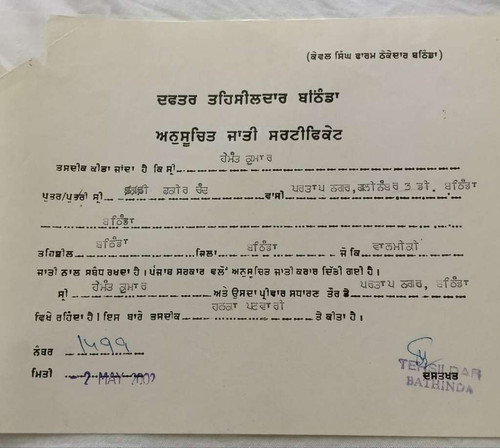 (ਕੇਵਲ ਸਿੰਘ ਫਾਰਮ ਠੇਕੇਦਾਰ ਬਠਿੰਡਾ)
ਦਫਤਰ ਤਹਿਸੀਲਦਾਰ ਬਠਿੰਡਾ
ਅਨੁਸੂਚਿਤ ਜਾਤੀ ਸਰਟੀਫਿਕੇਟ
ਹੇਮੰਤ ਕੁਮਾਰ
ਤਸਦੀਕ ਕੀਤਾ ਜਾਂਦਾ ਹੈ ਕਿ ਸ੍ਰੀ
ਪੁਤਰ/ਪੁਤਰੀ ਸ੍ਰੀ ਫਕੀਰ ਚੰਦ ਵਾਸੀ ਪਰਤਾਪ ਨਗਰ, ਗਲੀ ਨੰਬਰ 3.ਡੀ. ਬਠਿੰਡਾ
ਬਠਿੰਡਾ
ਤਹਿਸੀਲ ਬਠਿੰਡਾ ਜਿਲਾ ਬਠਿੰਡਾ ਜੋ ਕਿ ਵਾਲਮੀਕੀ
ਜਾਤੀ ਨਾਲ ਸਬੰਧ ਰਖਦਾ ਹੈ। ਪੰਜਾਬ ਸਰਕਾਰ ਵਲੋਂ ਅਨੁਸੂਚਿਤ ਜਾਤੀ ਕਰਾਰ ਦਿੱਤੀ ਗਈ ਹੈ।
ਸ੍ਰੀ ਹੇਮੰਤ ਕੁਮਾਰ ਅਤੇ ਉਸਦਾ ਪ੍ਰੀਵਾਰ ਸਧਾਰਣ ਤੌਰ ਤੇ ਪਰਤਾਪ ਨਗਰ, ਬਠਿੰਡਾ
ਵਿਖੇ ਰਹਿੰਦਾ ਹੈ। ਇਸ ਬਾਰੇ ਤਸਦੀਕ ਹਲਕਾ ਪਟਵਾਰੀ ਤੇ ਕੀਤਾ ਹੈ।
ਨੰਬਰ 1499
ਮਿਤੀ 2 MAY 2002
ਦਸਤਖਤ
TEHSILDAR
BATHINDA